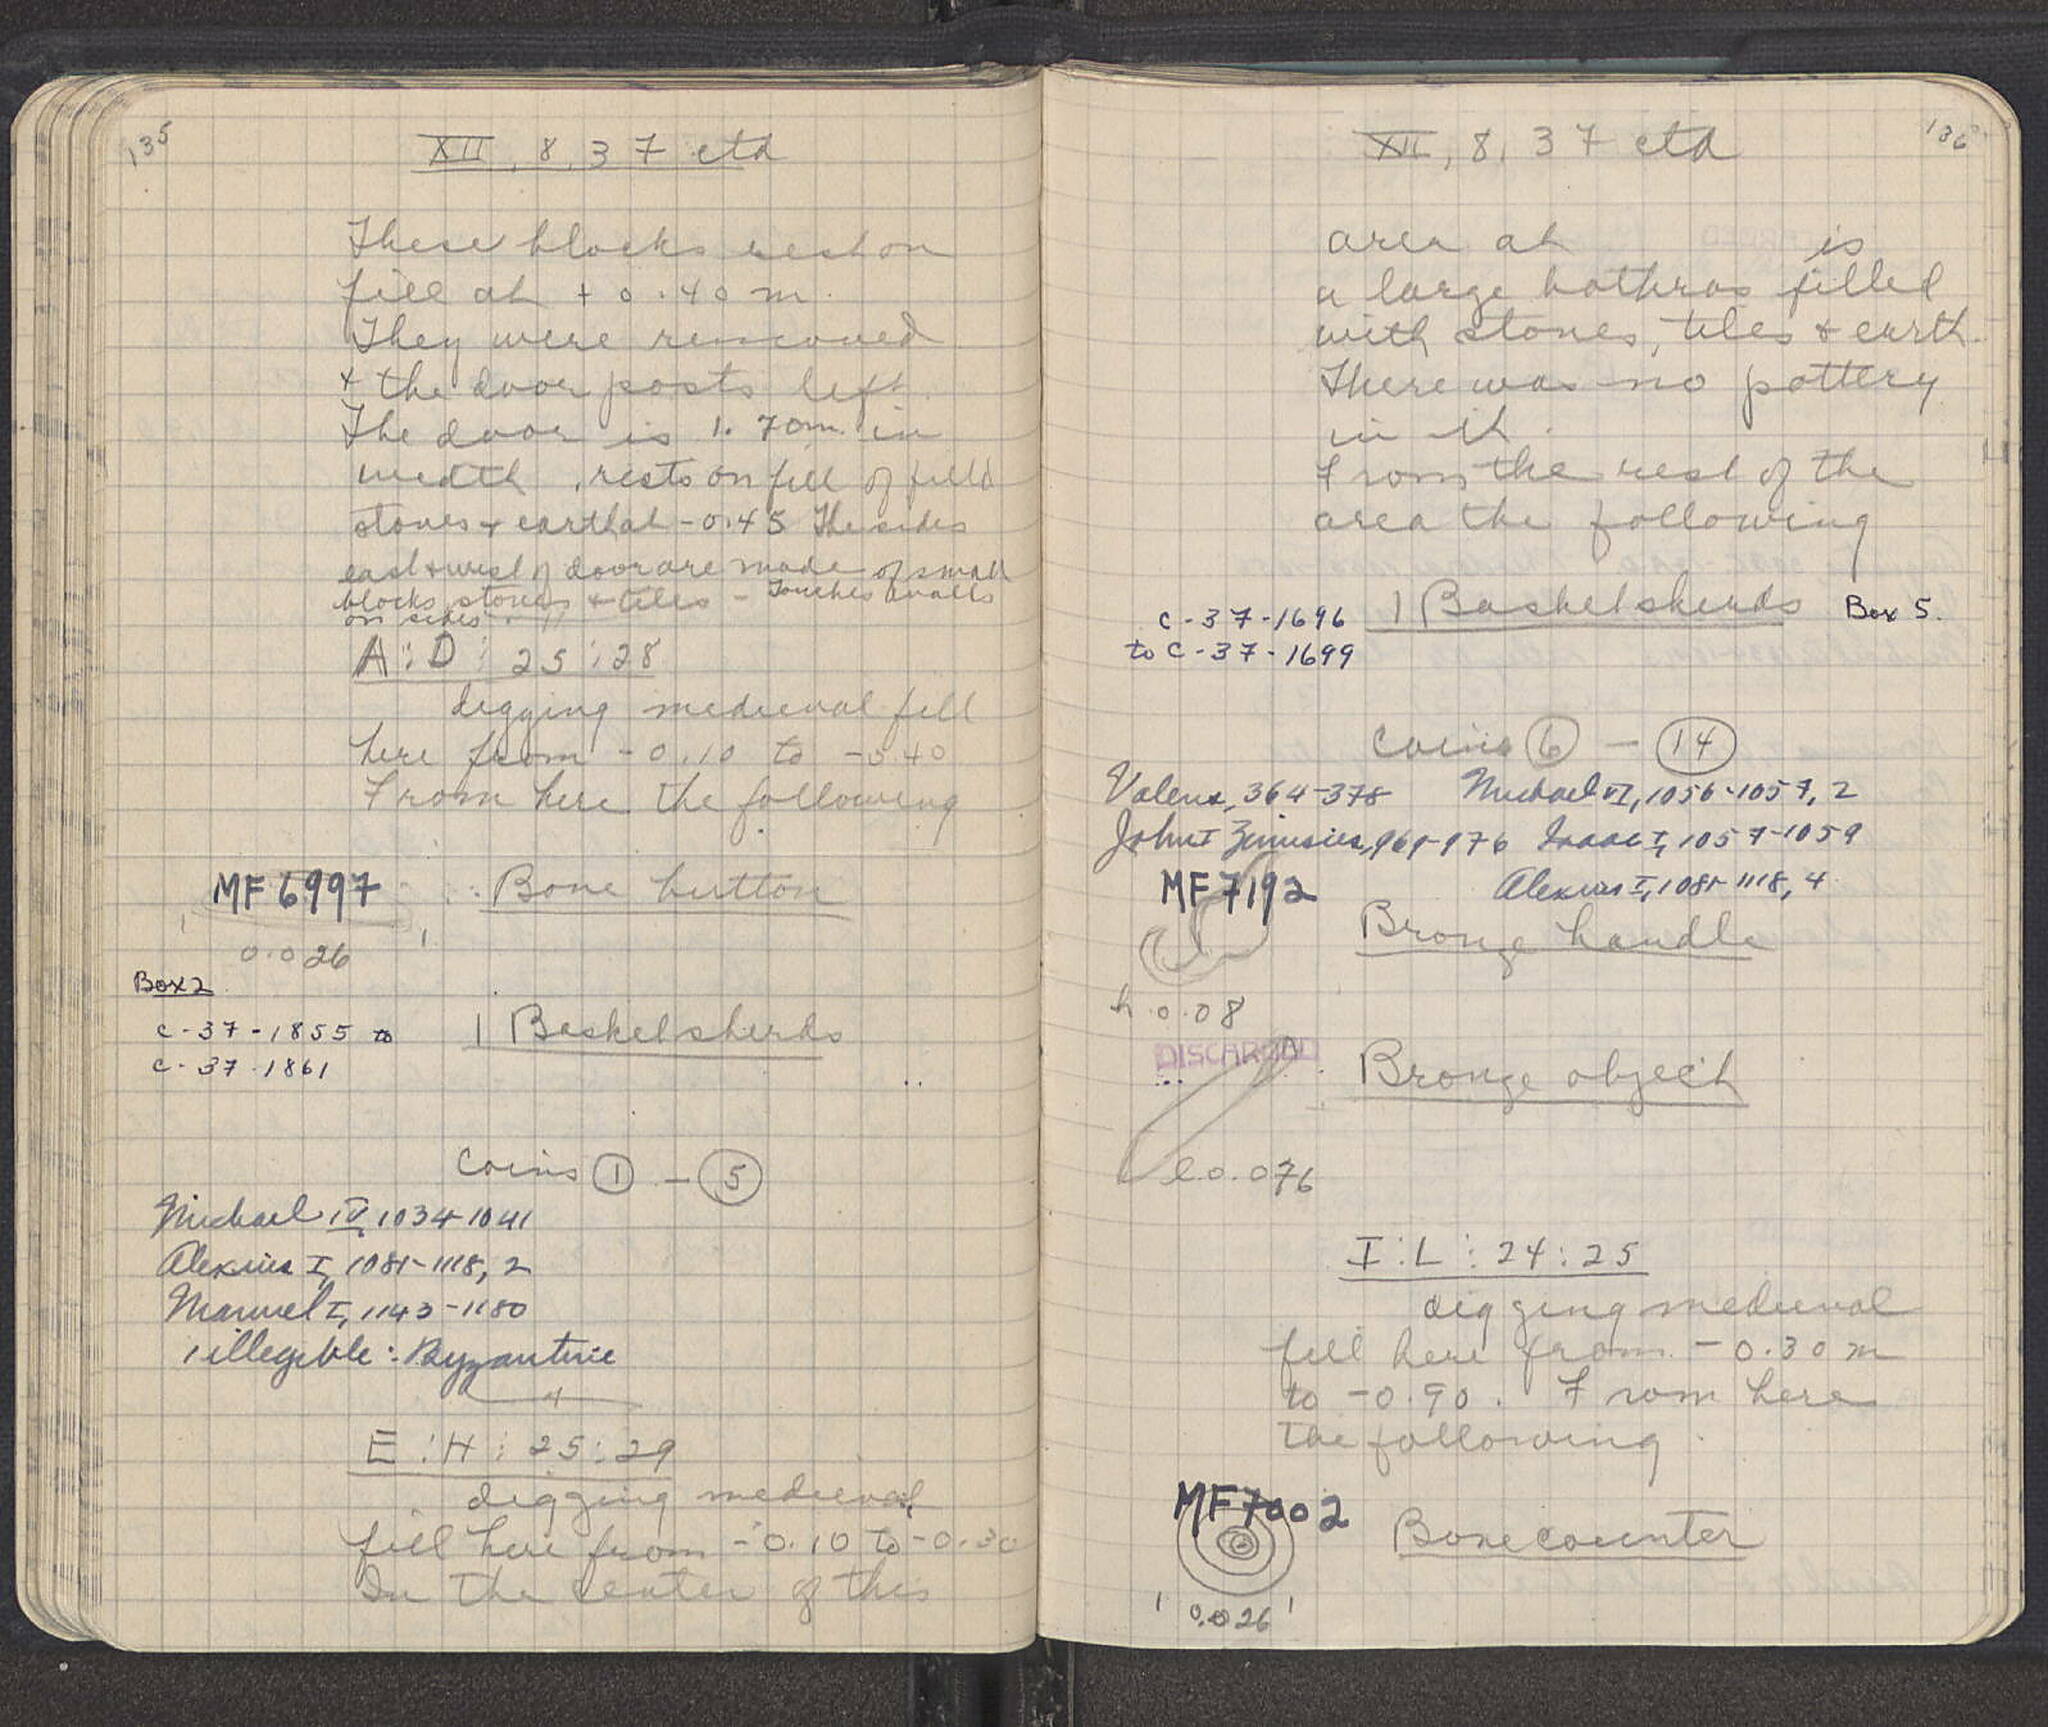 135
XII, 8, 37 ctd
These blocks rest on
fill at + 0.40 m.
They were removed
+ the door posts left.
The door is 1.70m in
width, rests on fill of field
stones + earth at -0.45 The sides
east + west of door are made of small
blocks, stones + tiles - Touches walls
on sides.
A:D : 25:28
digging medieval fill
here from -0.10 to -0.40
From here the following
MF 6997
Bone button
0.026
Box 2
C-37-1855 to
C-37-1861
1 Basket sherds
Coins 1 - 5
Michael IV, 1034-1041
Alexius I, 1081-1118, 2
Manuel I, 1143-1180
1 illegible: Byzantine
E:H : 25:29
digging medieval
fill here from -0.10 to -0.30
In the center of this
136
XII, 8, 37 ctd
area at is
a large bothros filled
with stones, tiles + earth.
There was no pottery
in it.
From the rest of the
area the following
C-37-1696
to C-37-1699
1 Basket sherds
Box 5.
Coins 6 - 14
Valens, 364-378 Michael VI, 1056-1057, 2
John I Zimisces, 969-976 Isaac I, 1057-1059
Alexius I, 1081-1118, 4
MF 7192
Bronze handle
h. 0.08
DISCARDED
Bronze object
l. 0.076
I:L : 24:25
digging medieval
fill here from -0.30 m
to -0.90. From here
the following.
MF 7002
Bone counter
0.026